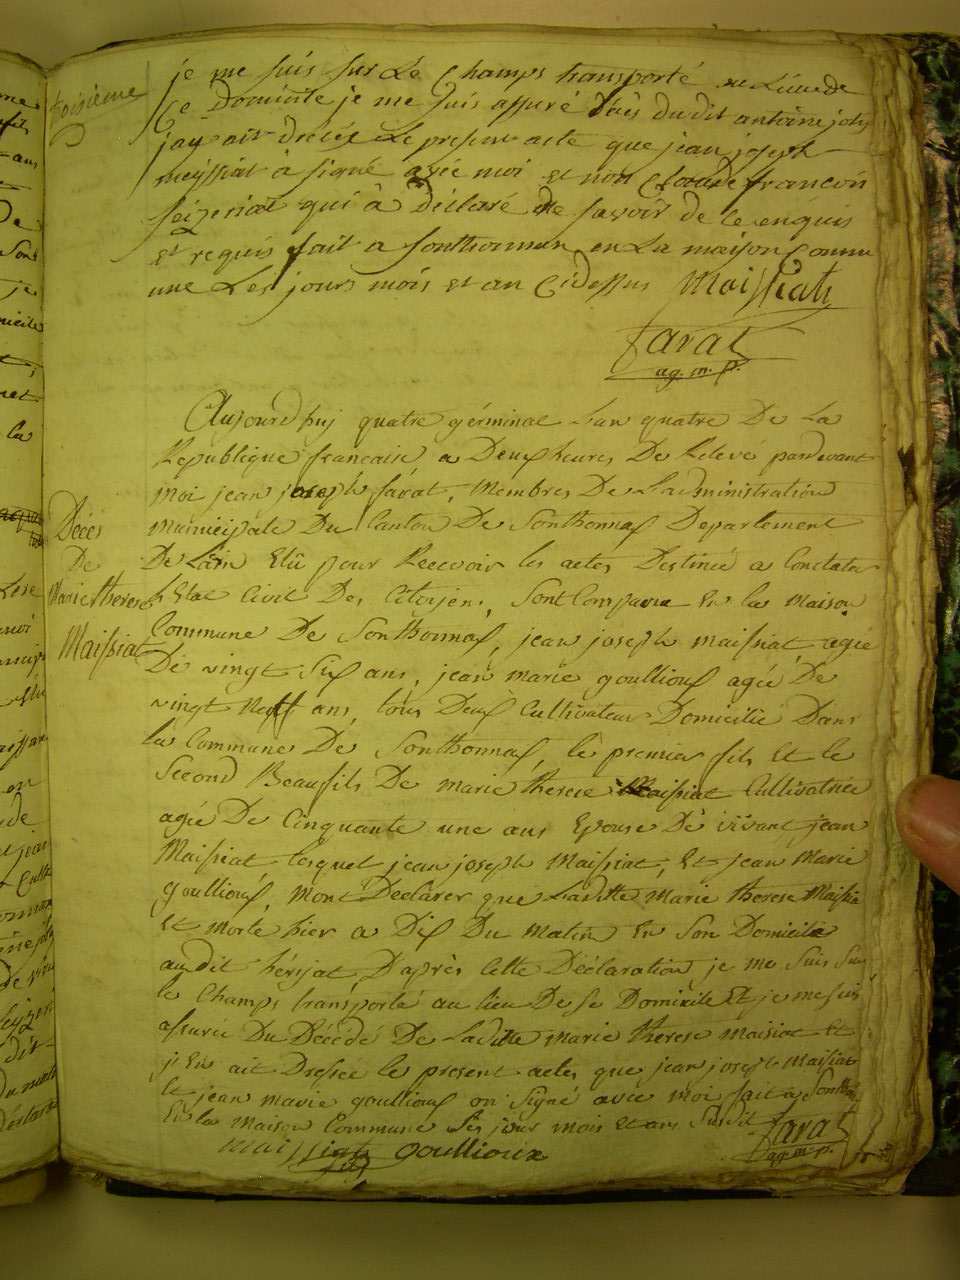 troisième
je me suis sur Le Champs transporté au Lieu de
Ce Domicile je me suis assuré du dit antoine joly
jay ait dressé Le present acte que jean joseph
meyssiat à signé avec moi et non Claude francois
seizeriat qui à Déclaré ne savoir de ce enquis
et requis fait a sonthonnax en La maison Commu
une Les jours mois et an Cidessus Maissiat
Favat
ag. m. p.
Décès
De
Marie therese
Maissiat
Aujourdhuy quatre gérminal Lan quatre De La
Republique francaise a Deux heures De Relevé pardevant
moi jean joseph favat, Membres De Ladministration
Municipale Du Canton De Sonthonnax Departement
De Lain Elû pour Recevoir les actes Destinée a Constater
LEtat Civil Des Citoyens, Sont Comparu En la Maison
Commune De Sonthonnax, jean joseph maissiat agée
De vingt six ans, jean marie goullioux agée De
vingt Neuff ans, tous Deux Cultivateur Domicilié Dans
la Commune De Sonthonnax, le premier fils Et le
Second Beaufils De marie therese Maissiat Cultivatrice
agée De Cinquante une ans Epouse De vivant jean
Maissiat Lesquel jean joseph Maissiat, Et jean Marie
goullioux, Mont Déclarer que Laditte Marie therese Maissia
Et Morte hier a Dix Du Matin En Son Domicile
audit hérisat D'après Cette Déclaration je me Suis Sur
le Champs transporté au lieu De Se Domicile Et je me suis
assurée Du Décédé De Laditte marie therese maissiat Et
jEn ait Dressée le present actes que jean joseph Maissiat
Et jean marie goullioux on Signé avec moi fait a Sontho
En la Maison Commune Les jour mois et ans Susdit Favat
maissiat goullioux ag. m. p.